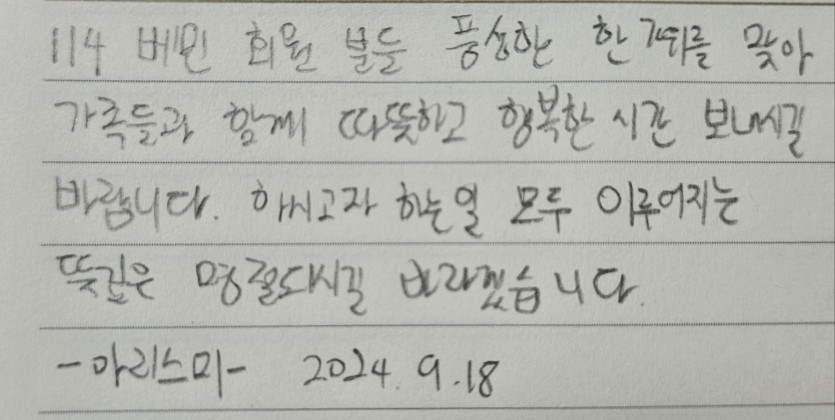 114 베민 회원 분들 풍성한 한가위를 맞아
가족들과 함께 따뜻하고 행복한 시간 보내시길
바랍니다. 하시고자 하는일 모두 이루어지는
뜻깊은 명절되시길 바라겠습니다.
-아리스미- 2024. 9.18